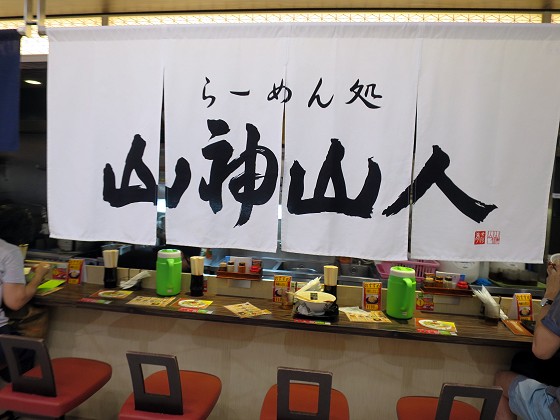 らーめん処
山神山人